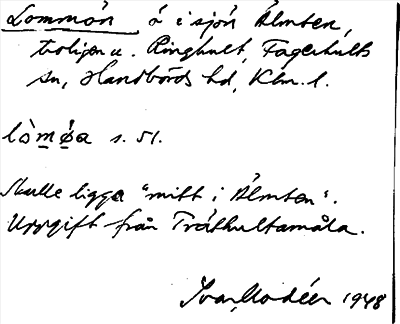 Lommön ö i sjön Älmten,
troligen u. Ringhult, Fagerhults
sn, Handbörds hd, Klm. l.
lòmøa s. 51.
Skulle ligga "mitt i Älmten".
Uppgift från Tråthultamåla.
Ivar Modéer 1948